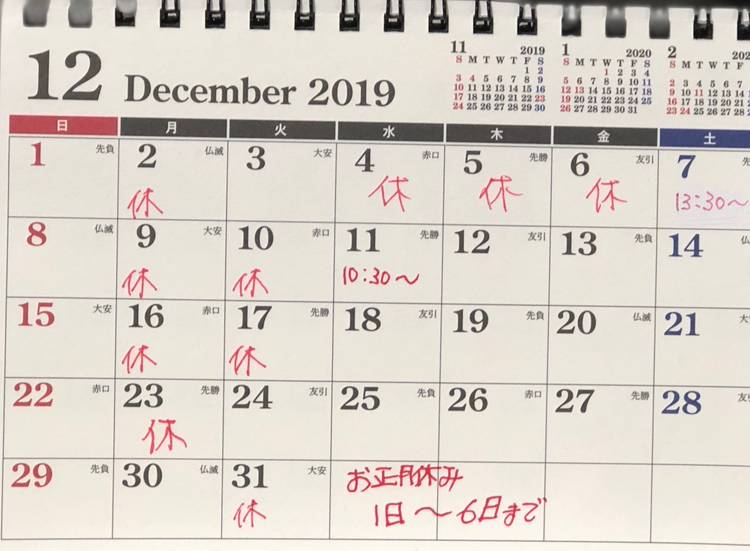 12 December 2019
11 2019
S M T W T F S
1 2
3 4 5 6 7 8 9
10 11 12 13 14 15 16
17 18 19 20 21 22 23
24 25 26 27 28 29 30
1 2020
S M T W T F S
1 2 3 4
5 6 7 8 9 10 11
12 13 14 15 16 17 18
19 20 21 22 23 24 25
26 27 28 29 30 31
2
S M T W T F
2 3 4 5 6 7
9 10 11 12 13 14
16 17 18 19 20 21
23 24 25 26 27 28
日 月 火 水 木 金 土
1 先負 2 仏滅 3 大安 4 赤口 5 先勝 6 友引 7
休 休 休 休 13:30〜
8 仏滅 9 大安 10 赤口 11 先勝 12 友引 13 先負 14
休 休 10:30〜
15 大安 16 赤口 17 先勝 18 友引 19 先負 20 仏滅 21
休 休
22 赤口 23 先勝 24 友引 25 先負 26 仏滅 27 先勝 28
休
29 先負 30 仏滅 31 大安 お正月休み
休 1日〜6日まで